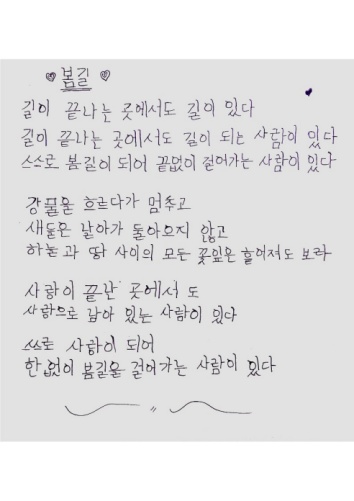 ♡ 봄길 ♡
길이 끝나는 곳에서도 길이 있다
길이 끝나는 곳에서도 길이 되는 사람이 있다
스스로 봄길이 되어 끝없이 걸어가는 사람이 있다
강물은 흐르다가 멈추고
새들은 날아가 돌아오지 않고
하늘과 땅 사이의 모든 꽃잎은 흩어져도 보라
사랑이 끝난 곳에서도
사랑으로 남아 있는 사람이 있다
스스로 사랑이 되어
한없이 봄길을 걸어가는 사람이 있다